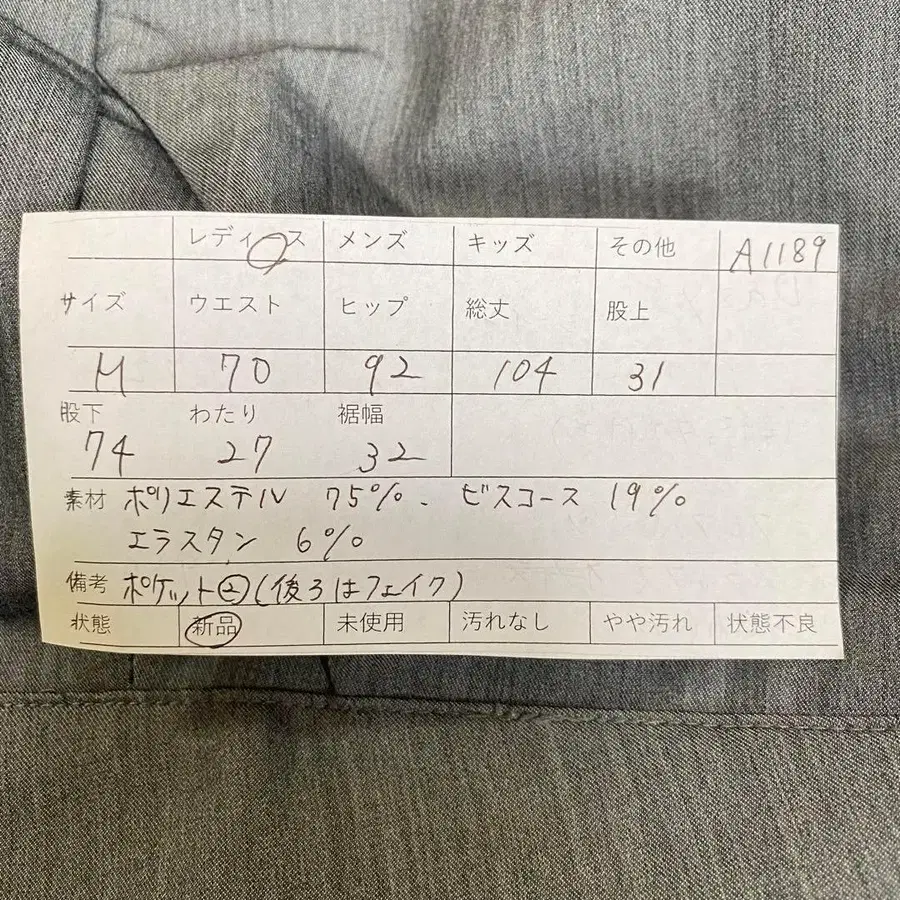 レディース メンズ キッズ その他 A1189
サイズ ウエスト ヒップ 総丈 股上
M 70 92 104 31
股下 わたり 裾幅
74 27 32
素材 ポリエステル 75%、ビスコース 19%
エラスタン 6%
備考 ポケット②(後ろはフェイク)
状態 新品 未使用 汚れなし やや汚れ 状態不良